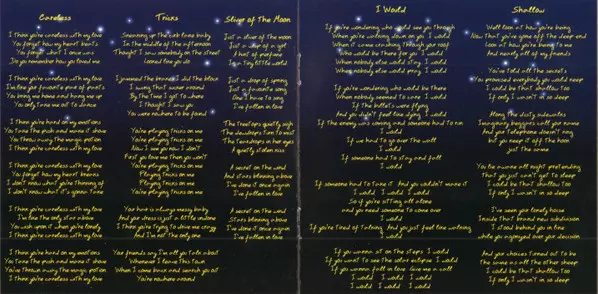 Careless
I think you're careless with my love
You forget how my heart hunts
You forget what I once was
Do you remember how you loved me
I think you're careless with my love
I'm like your favorite piece of pants
You bring me home and hang me up
You only take me out to dance
I think you're hard on my emotions
You tune the push and make it shove
I think you're careless with my love
I think you're careless with my love
You forget how my heart breaks
I don't know what you're thinking of
I don't know what it's gonna take
I think you're careless with my love
I'm like the only star above
You wish upon it when you're lonely
I think you're careless with my love
I think you're hard on my emotions
You tune the push and make it shove
I think you're careless with my love
Tricks
Steaming up the cab take baby
In the middle of the afternoon
Thought I saw somebody on the street
Looked like you do
I jammed the brakes I did the block
I swung that sucker around
By the time I got to where
I thought I saw you
You were nowhere to be found
You're playing tricks on me
You're playing tricks on me
Now I see you now I don't
First you love me then you won't
You're playing tricks on me
Playing tricks on me
Playing tricks on me
You're playing tricks on me
Your hair is always messy baby
And your dress is just a little undone
I think you're trying to drive me crazy
And I'm not the only one
Your friends say I'm all you talk about
Whenever I leave this town
When I come back and search you out
You're nowhere around
Sliver of the Moon
Just a sliver of the moon
Just a sip of a
A hint of perfume
In a tiny little world
Just a drop of spring
Just a favorite song
One I have to sing
I've fallen in love
The treetops quietly sigh
The dewdrops turn to mist
The teardrops in her eyes
A quietly stolen kiss
A secret on the wind
And stars blinking above
I've done it once again
I've fallen in love
A secret on the wind
Stars blinking above
I've done it once again
I've fallen in love
I Would
If you're wondering who would see you through
When you're waking down on you I would
When it comes crashing through your roof
Who would be there for you I would
When nobody else would stay I would
When nobody else would pray I would
If you're wondering who would be there
When nobody seemed to care I would
If the bullets were flying
And you didn't feel like dying I would
If the enemy was coming and someone had to run
I would
If we had to go over the wall
I would
If someone had to stay and fall
I would
If someone had to take it And you wouldn't make it
I would I would I would
So if you're sitting all alone
and you need someone to come over
I would
If you're tired of talking And you just feel like walking
I would
If you wanna sit on the steps I would
If you want to see the solar eclipse I would
If you wanna fall in love Give me a call
I would I would I would
I would I would
Shallow
Well look at how you're being
Now that you've gone off the deep end
Look at how you're being to me
And nearly all of my friends
You've told all the secrets
You promised everybody you would keep
I would be that shallow too
If only I wasn't in so deep
Along the dusty sidewalks
Imaginary begonias call your name
And your telephone doesn't ring
but you keep it off the hook
just the same
You be awake all night pretending
That you just can't get to sleep
I would be that shallow too
If only I wasn't in so deep
I've seen your lonely house
Inside that brand new subdivision
I stood behind you in line
while you agonized over your decision
And your choices turned out to be
The same as all the other sheep
I would be that shallow too
If only I wasn't in so deep